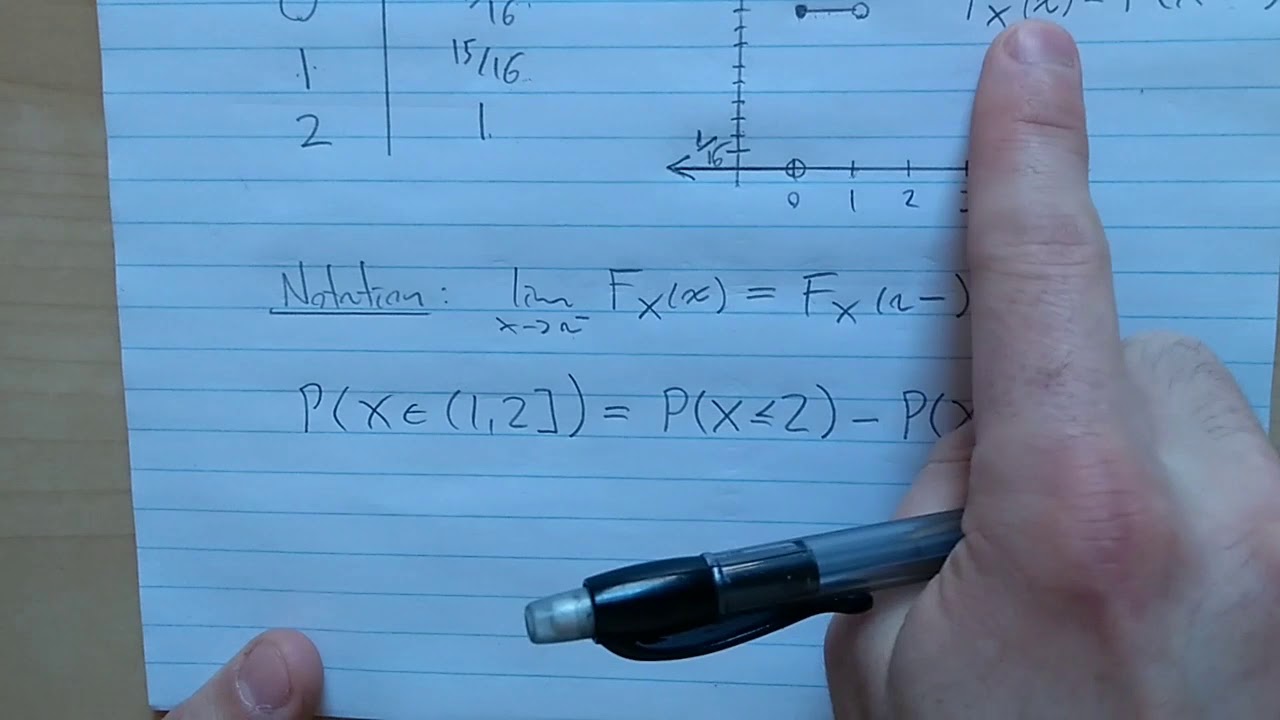 0 16
1 15/16
2 1
1/16
0 1 2
Notation: lim x→x⁻ F_X(x) = F_X(x-)
P(X∈(1,2]) = P(X≤2) - P(X